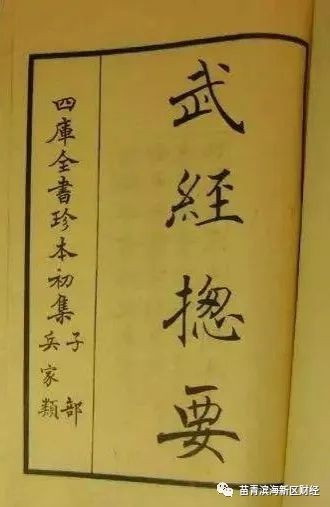 武經揔要
四庫全書珍本初集 子部
兵家類
苗青滨海新区财经